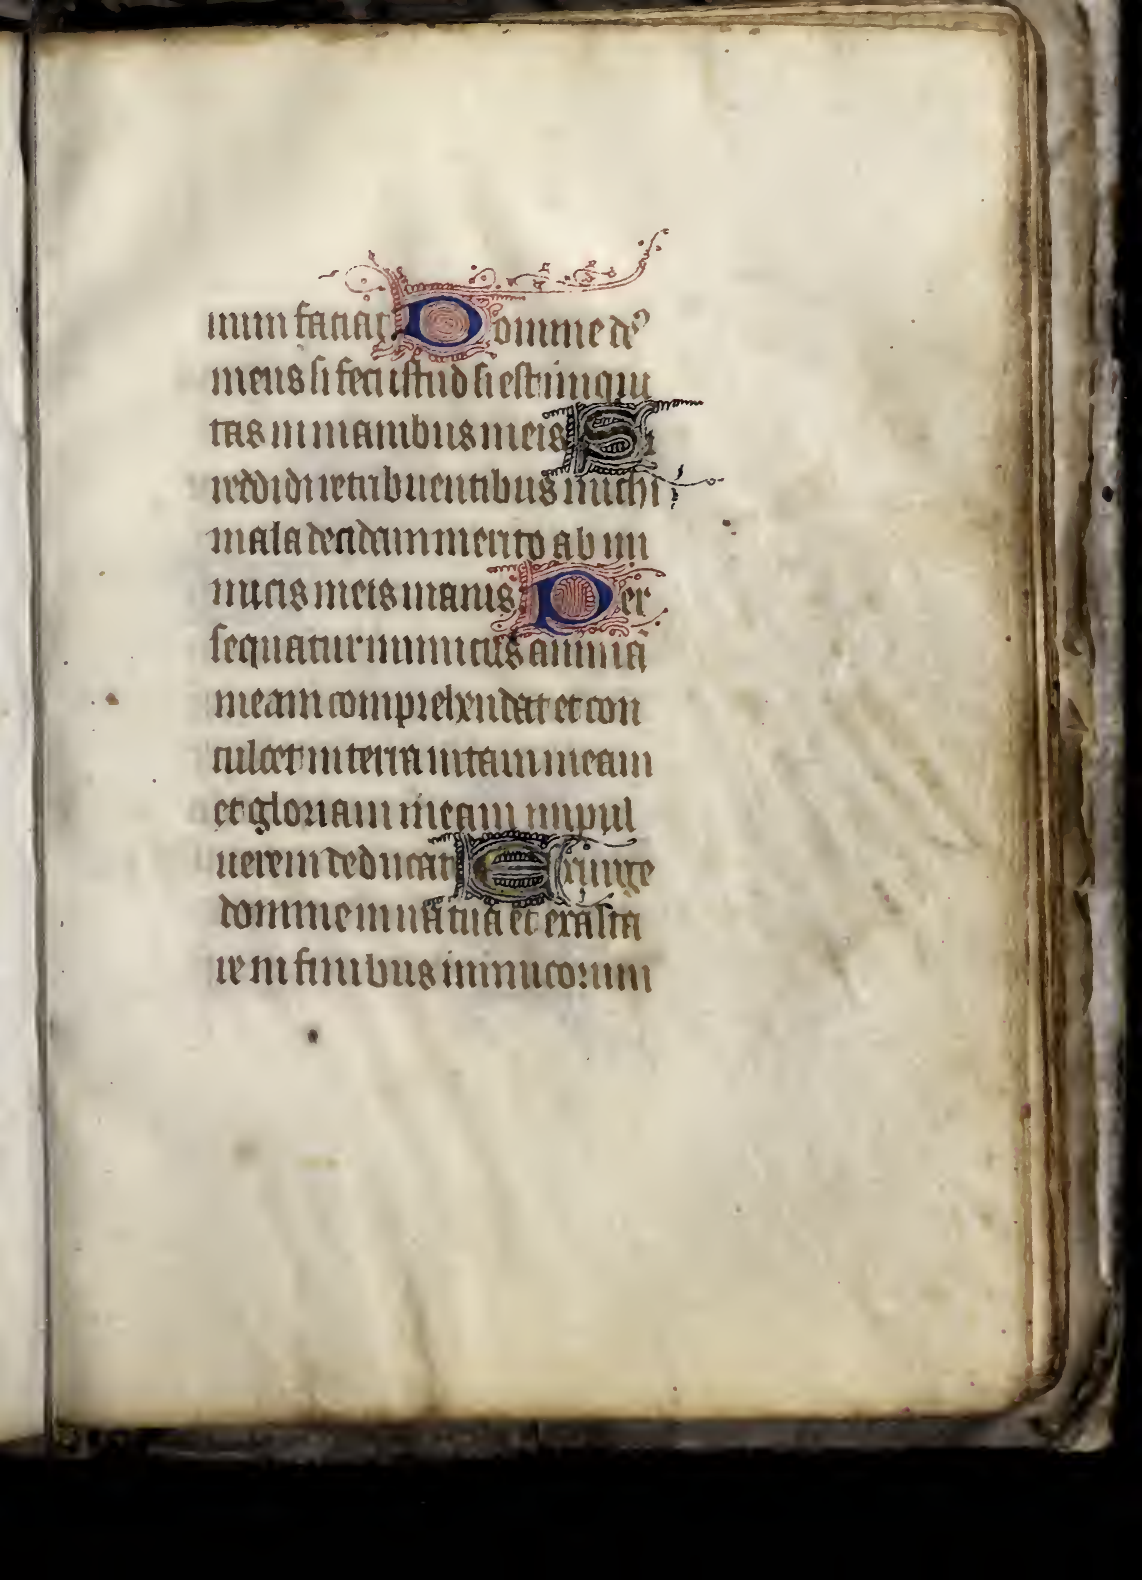 uum faciat Domine de⁹
meus si feci istud si est iniqui
tas in manibus meis Si
reddidi retribuentibus michi
mala decidam merito ab ini
micis meis inanis Per
sequatur inimicus animā
meam comprehendat et con
culcet in terra uitam meam
et gloriam meam in pul
uerem deducat Exurge
domine in ira tua et exalta
re in finibus inimicorum